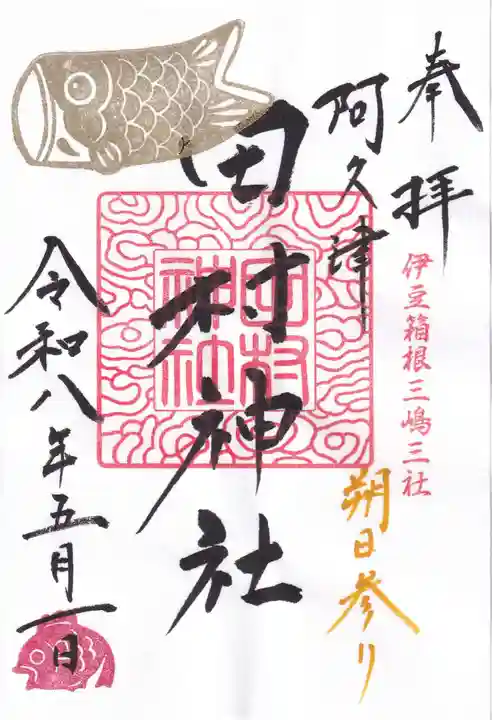 奉拝
伊豆箱根三嶋三社
阿久津
朔日参り
田村神社
田村神社
令和八年五月一日